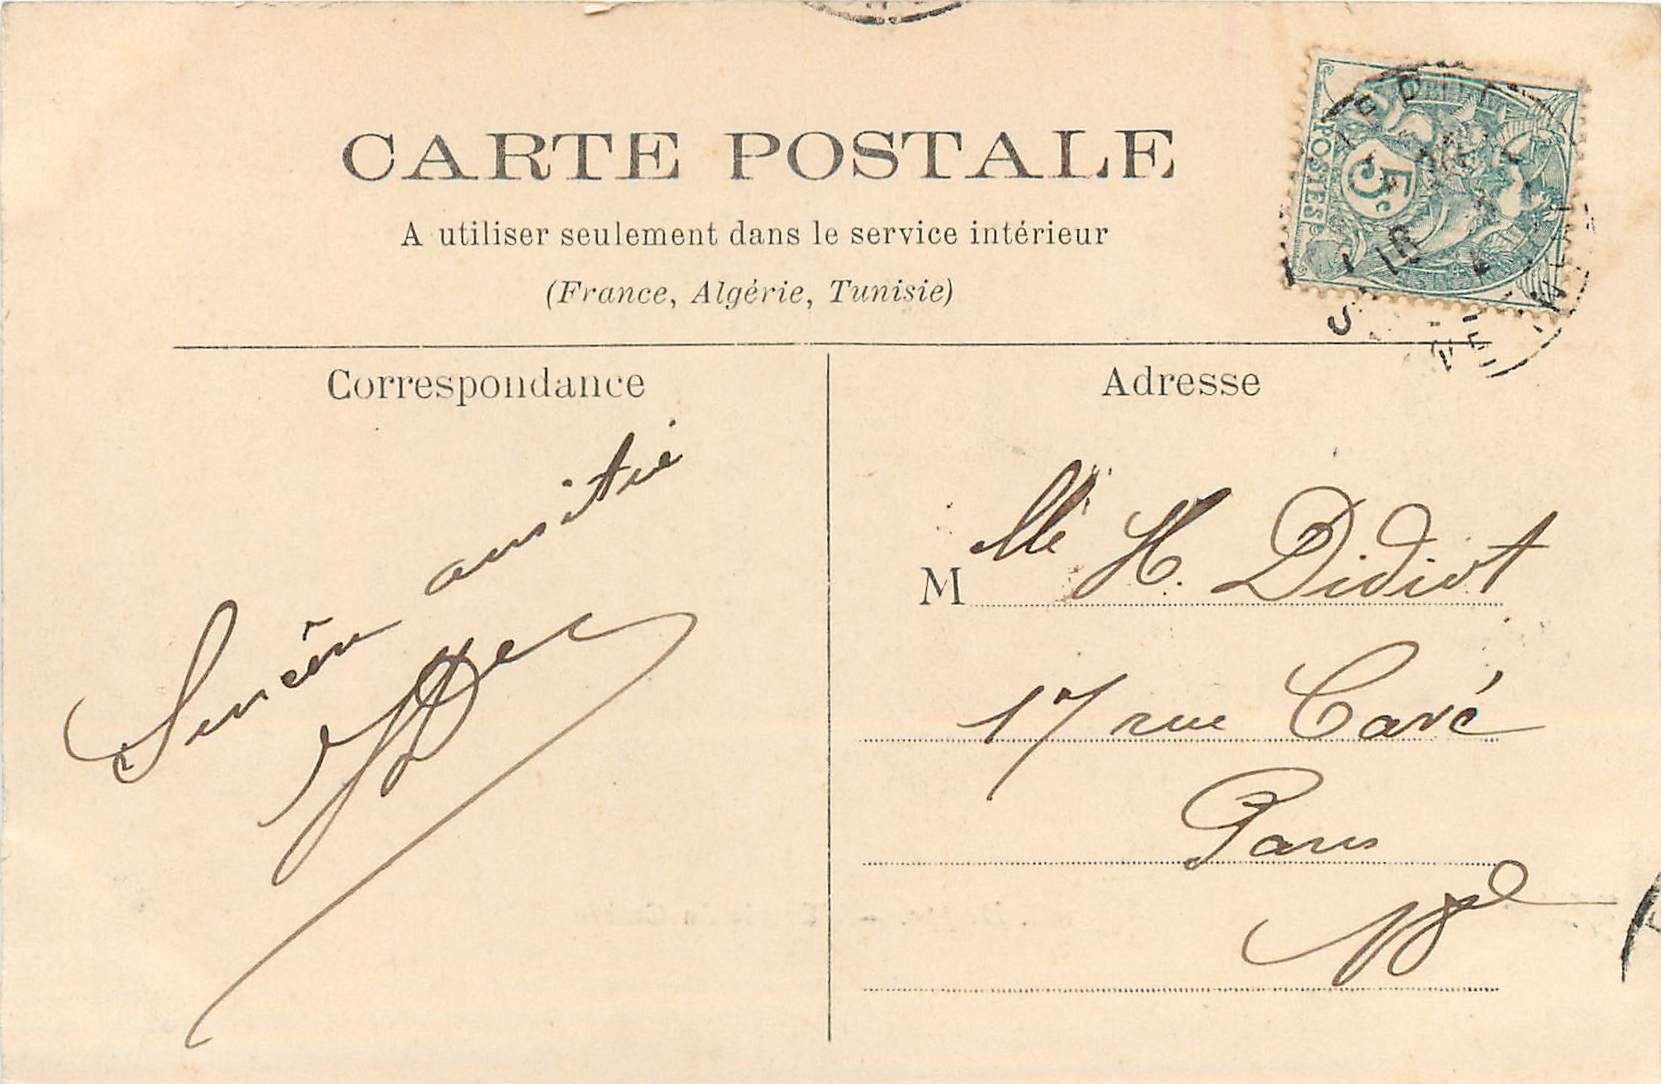 CARTE POSTALE
A utiliser seulement dans le service intérieur
(France, Algérie, Tunisie)
POSTES
5c
Correspondance
Sincère amitié
Adresse
Mlle H. Didiot
17 rue Cavé
Paris